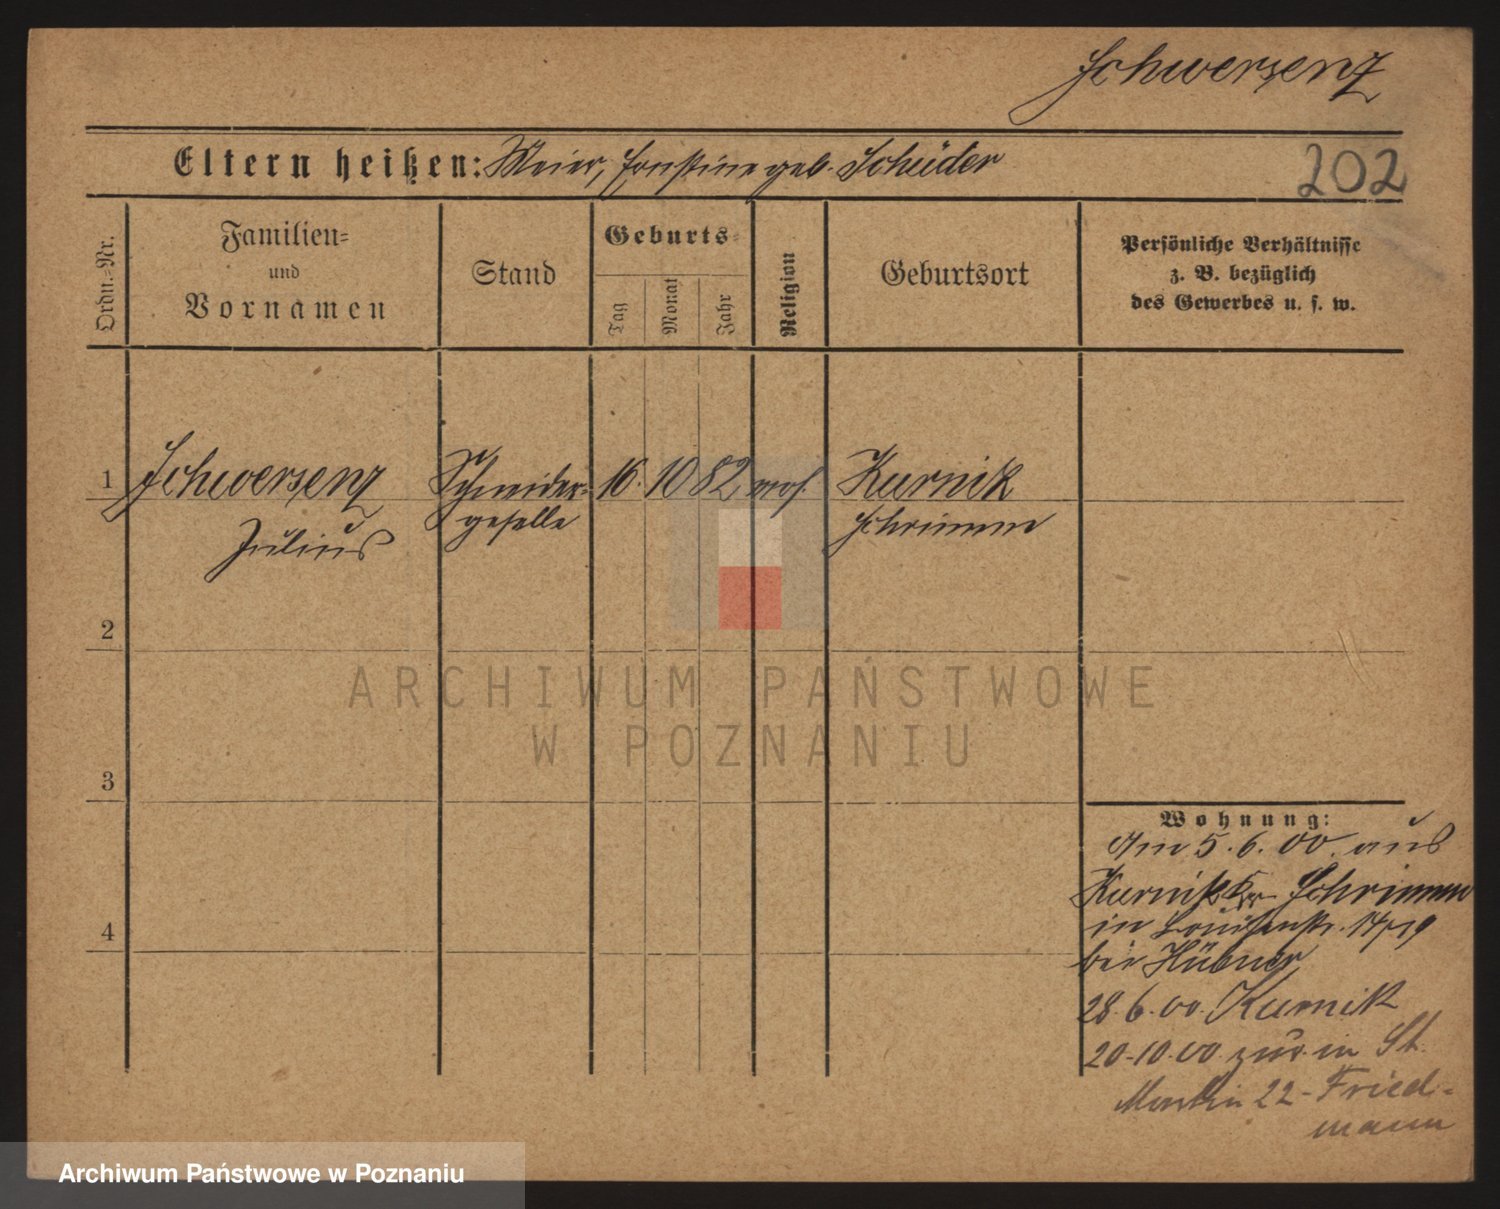 Schwersenz
Eltern heißen: Meier, Ernstine geb. Schüder
202
Ordn.-Nr.
Familien-
und
Vornamen
Stand
Geburts-
Tag
Monat
Jahr
Religion
Geburtsort
Persönliche Verhältnisse
z. B. bezüglich
des Gewerbes u. s. w.
1 Schwersenz Schneider- 16. 10 82 mos. Kurnik
Julius geselle Schrimm
2
ARCHIWUM PAŃSTWOWE
W POZNANIU
3
Wohnung:
Am 5.6.00. aus
Kurnik Kr. Schrimm
in Louisenstr. 14/19
4
bei Hübner
28.6.00. Kurnik
20-10.00 zur. in St.
Martin 22 - Fried-
mann
Archiwum Państwowe w Poznaniu